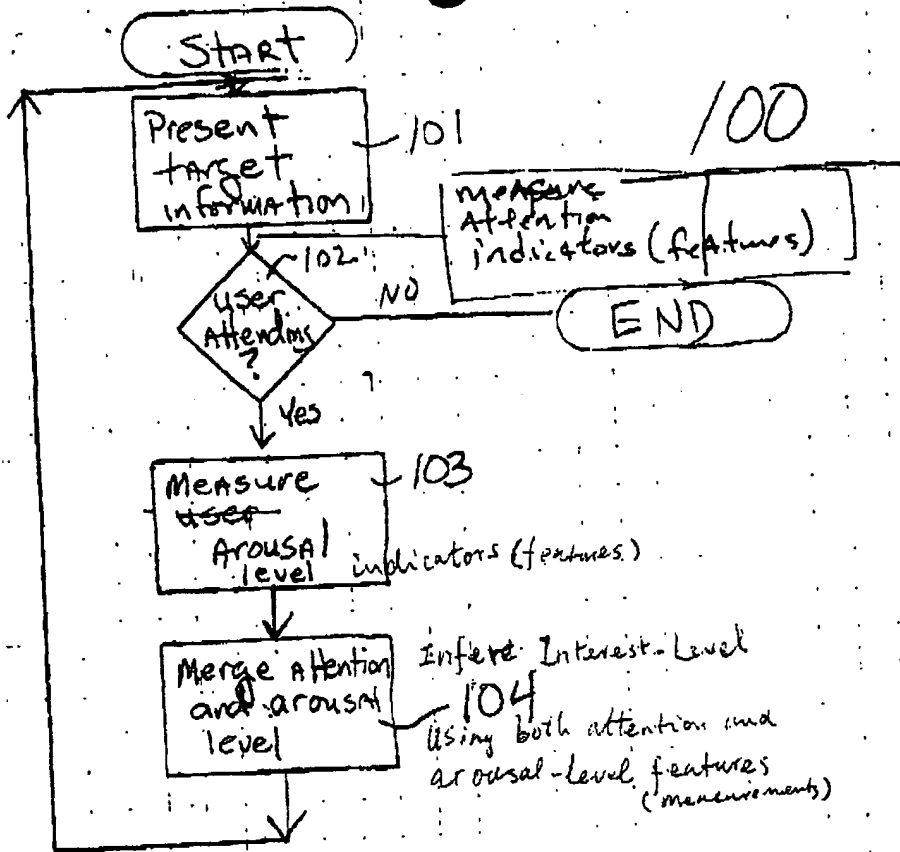 START
Present
target
information
101
100
measure
Attention
indicators (features)
102
user
Attending
?
NO
END
Yes
Measure
user
Arousal
level indicators (features)
103
Merge Attention
and arousal
level
104
Infere Interest-Level
Using both attention and
arousal-level features
(measurements)